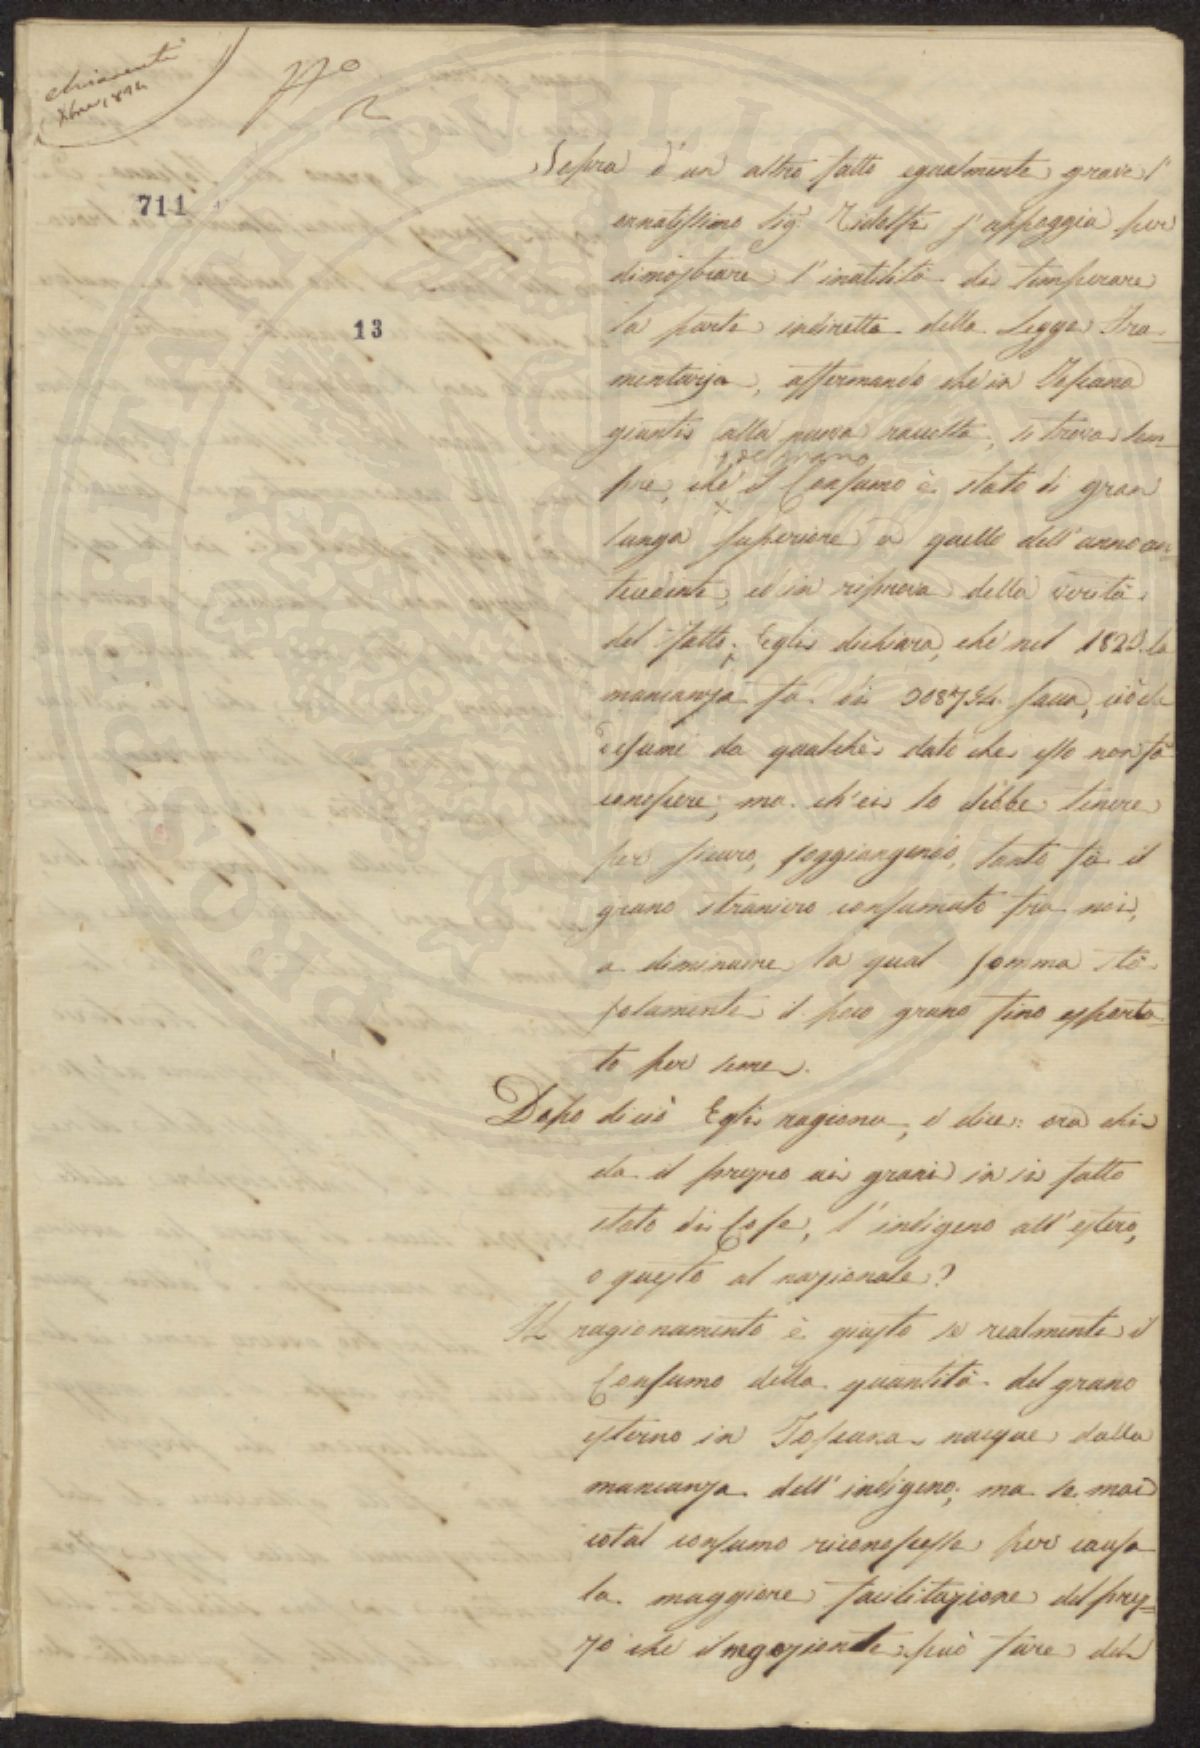 Chiarenti
Xbre 1824
711
13
Sopra d'un altro fatto egualmente grave l'
ornatissimo Sig.r Ridolfi s'appoggia per
dimostrare l'inutilità di temperare
la parte indiretta della Legge Fru-
mentaria, affermando che in Toscana
giunti alla nuova raccolta, si trova sem-
del grano
pre, che il Consumo è stato di gran
lunga superiore a quello dell'anno an-
tecedente, ed in riprova della verità
del fatto; Egli dichiara, che nel 1823 la
mancanza fù di sacca, ciò che
desume da qualche dato che esso non fà
conoscere; ma ch'ei lo debbe tenere
per sicuro, soggiungendo, tanto fù il
grano straniero consumato fra noi,
a diminuire la qual somma stà
solamente il poco grano fino esporta-
to per seme.
Dopo di ciò Egli ragiona, e dice: ora chi
dà il prezzo ai grani in sì fatto
stato di Cose, l'indigeno all'estero,
o questo al nazionale?
Il ragionamento è giusto se realmente il
Consumo della quantità del grano
esterno in Toscana nacque dalla
mancanza dell'indigeno; ma se mai
cotal consumo riconoscesse per causa
la maggiore facilitazione del prez-
zo che il negoziante può fare del